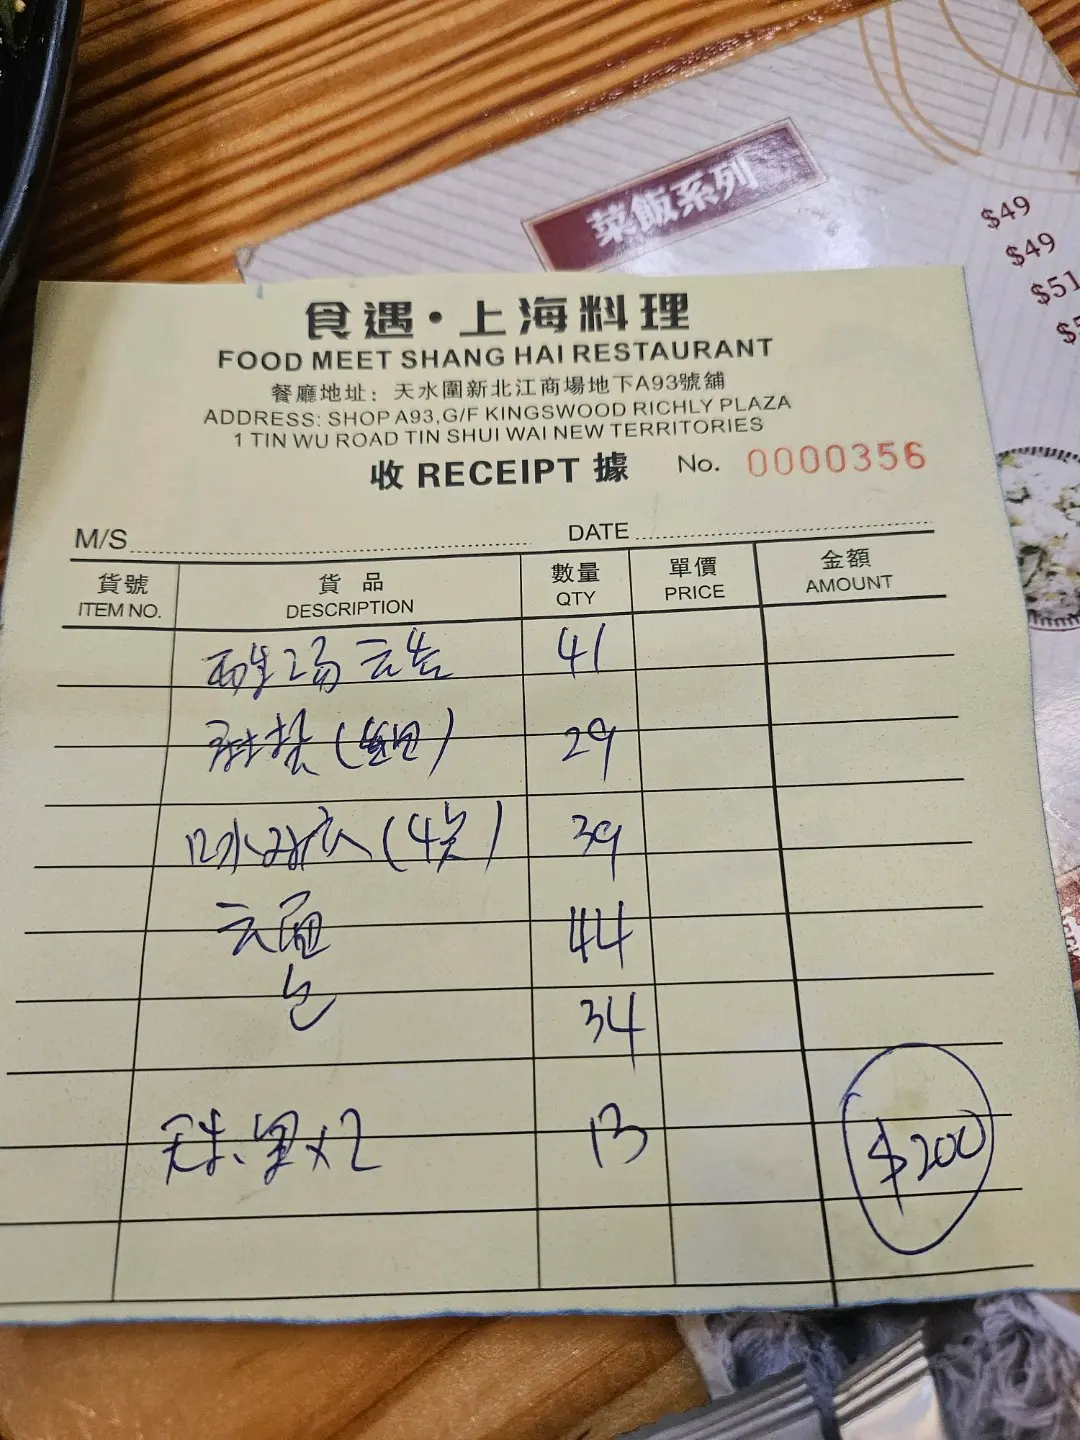 菜飯系列
$49
$49
$51
食遇・上海料理
FOOD MEET SHANG HAI RESTAURANT
餐廳地址：天水圍新北江商場地下A93號舖
ADDRESS: SHOP A93,G/F KINGSWOOD RICHLY PLAZA
1 TIN WU ROAD TIN SHUI WAI NEW TERRITORIES
收 RECEIPT 據 No. 0000356
M/S DATE
貨號 貨品 數量 單價 金額
ITEM NO. DESCRIPTION QTY PRICE AMOUNT
41
29
口水 39
44
34
x2 13
$200